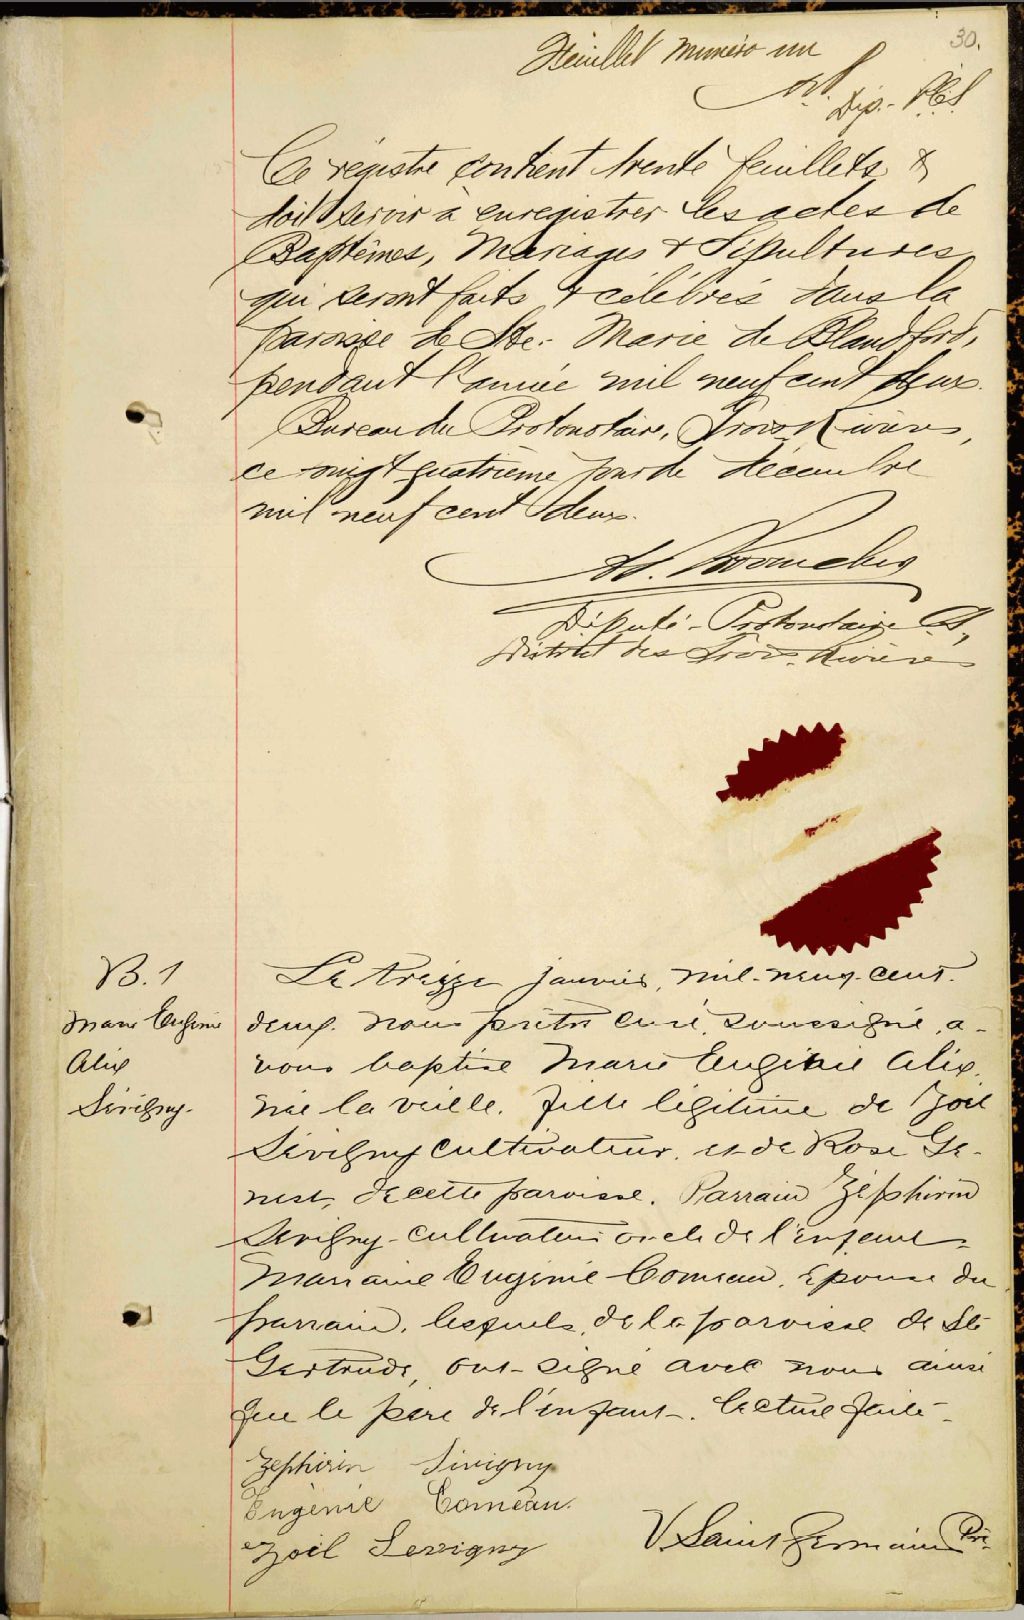 30.
Feuillet numéro un
Dép. P.C.S
Ce régistre contient trente feuillets &
doit servir à enregistrer les actes de
Baptêmes, Mariages & Sépultures
qui seront faits & célébrés dans la
paroisse de Ste. Marie de Blandford,
pendant l'année mil neuf cent deux.
Bureau du Protonotaire, Trois Rivières,
ce vingt quatrième jour de décembre
mil neuf cent deux.
Député-Protonotaire C.S,
District des Trois-Rivières
B. 1
Marie Eugénie
Alix
Sévigny.
Le treize janvier, mil-neuf-cent-
deux nous prêtre curé, soussigné, a-
vons baptisé Marie Eugénie Alix,
née la veille, fille légitime de Joël
Sévigny cultivateur, et de Rose Ge-
nest, de cette paroisse. Parrain Zéphirin
Sévigny-cultivateur oncle de l'enfant-
Marraine Eugénie Comeau, épouse du
parrain, lesquels, de la paroisse de Ste
Gertrude, ont signé avec nous ainsi
que le père de l'enfant. Lecture faite-
Zephirin Sévigny
Eugénie Comeau.
Joël Sevvigny
V. Saint Germain Ptre-